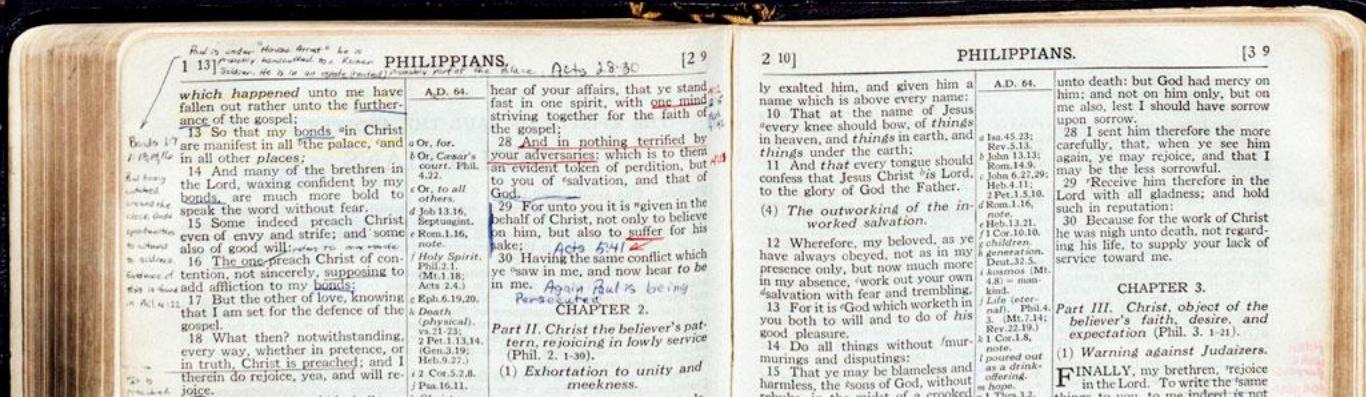 Paul is under "House Arrest" he is
handcuffed to a Roman
1 13] PHILIPPIANS. [2 9
Soldier. He is in an part of the Palace. Acts 28:30
which happened unto me have
fallen out rather unto the further-
ance of the gospel;
13 So that my bonds in Christ
are manifest in all the palace, and
in all other places;
14 And many of the brethren in
the Lord, waxing confident by my
bonds, are much more bold to
speak the word without fear.
15 Some indeed preach Christ
even of envy and strife; and some
also of good will:
16 The one preach Christ of con-
tention, not sincerely, supposing to
add affliction to my bonds:
17 But the other of love, knowing
that I am set for the defence of the
gospel.
18 What then? notwithstanding,
every way, whether in pretence, or
in truth, Christ is preached; and I
therein do rejoice, yea, and will re-
joice.
Bonds
A.D. 64.
a Or, for.
b Or, Cæsar's
court. Phil.
4.22.
c Or, to all
others.
d Job 13.16,
Septuagint.
e Rom.1.16,
note.
f Holy Spirit.
Phil.2.1.
(Mt.1.18;
Acts 2.4.)
g Eph.6.19,20.
h Death
(physical).
vs.21-23;
2 Pet.1.13,14.
(Gen.3.19;
Heb.9.27.)
i 2 Cor.5.2,8.
j Psa.16.11.
hear of your affairs, that ye stand
fast in one spirit, with one mind
striving together for the faith of
the gospel;
28 And in nothing terrified by
your adversaries: which is to them
an evident token of perdition, but
to you of salvation, and that of
God.
29 For unto you it is given in the
behalf of Christ, not only to believe
on him, but also to suffer for his
sake; Acts 5:41
30 Having the same conflict which
ye saw in me, and now hear to be
in me. Again Paul is being
Persecuted
CHAPTER 2.
Part II. Christ the believer's pat-
tern, rejoicing in lowly service
(Phil. 2. 1-30).
(1) Exhortation to unity and
meekness.
2 10] PHILIPPIANS. [3 9
ly exalted him, and given him a
name which is above every name:
10 That at the name of Jesus
every knee should bow, of things
in heaven, and things in earth, and
things under the earth;
11 And that every tongue should
confess that Jesus Christ is Lord,
to the glory of God the Father.
(4) The outworking of the in-
worked salvation.
12 Wherefore, my beloved, as ye
have always obeyed, not as in my
presence only, but now much more
in my absence, work out your own
salvation with fear and trembling.
13 For it is God which worketh in
you both to will and to do of his
good pleasure.
14 Do all things without mur-
murings and disputings:
15 That ye may be blameless and
harmless, the sons of God, without
rebuke, in the midst of a crooked
A.D. 64.
a Isa.45.23;
Rev.5.13.
b John 13.13;
Rom.14.9.
c John 6.27,29;
Heb.4.11;
2 Pet.1.5,10.
d Rom.1.16,
note.
e Heb.13.21.
f 1 Cor.10.10.
g children.
h generation.
Deut.32.5.
i kosmos (Mt.
4.8) = man-
kind.
j Life (eter-
nal). Phil.4.
3. (Mt.7.14;
Rev.22.19.)
k 1 Cor.1.8,
note.
l poured out
as a drink-
offering.
m hope.
unto death: but God had mercy on
him; and not on him only, but on
me also, lest I should have sorrow
upon sorrow.
28 I sent him therefore the more
carefully, that, when ye see him
again, ye may rejoice, and that I
may be the less sorrowful.
29 Receive him therefore in the
Lord with all gladness; and hold
such in reputation:
30 Because for the work of Christ
he was nigh unto death, not regard-
ing his life, to supply your lack of
service toward me.
CHAPTER 3.
Part III. Christ, object of the
believer's faith, desire, and
expectation (Phil. 3. 1-21).
(1) Warning against Judaizers.
FINALLY, my brethren, rejoice
in the Lord. To write the same
things to you, to me indeed is not